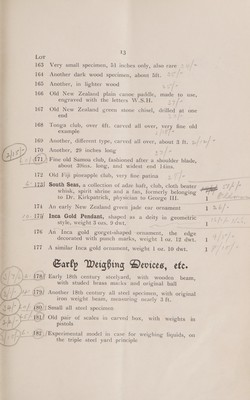 13
LOT
163 Very small specimen, 23 inches only, also rare
164 Another dark wood specimen, about 3ft.
165 Another, in lighter wood
166 Old New Zealand plain canoe paddle, made to use, engraved with the letters W.N.H.
167 Old New Zealand green stone chisel, drilled at one end
168 Tonga club, over 4ft. carved all over, very fine old example
169 Another, different type, carved all over, about 3 ft.
170 Another, 29 inches long
171 Fine old Samoa club, fashioned after a shoulder blade, about 30ins. long, and widest end 14ins.
172 Old Fiji pineapple club, very fine patina
173 South Seas, a collection of sake hafts, club, cloth beater whisk, spirit shrine and a fan, formerly belonging to Dr. Kirkpatrick, physician to George III.
174 An early New Zealand green jade ear ornament 1
175 Inca Gold Pendant, shaped as a deity in geometric style, weight 3 ozs. 0 dwt. 1
176 An Inca gold gorget-shaped ornament, the edge decorated with punch marks, weight 1 oz. 12 dwt. 1
177 A similar Inca gold ornament, weight 1 oz. 10 dwt. 1
Early Weighing Devices, etc.
178 Early 18th century steelyard, with wooden beam, with studded brass marks and original ball
179 Another 18th century all steel specimen, with original iron weight beam, measuring nearly 3 ft.
180 Small all steel specimen
181 Old pair of scales in carved box, with weights in pistols
182 Experimental model in case for weighing liquids, on the triple steel yard principle